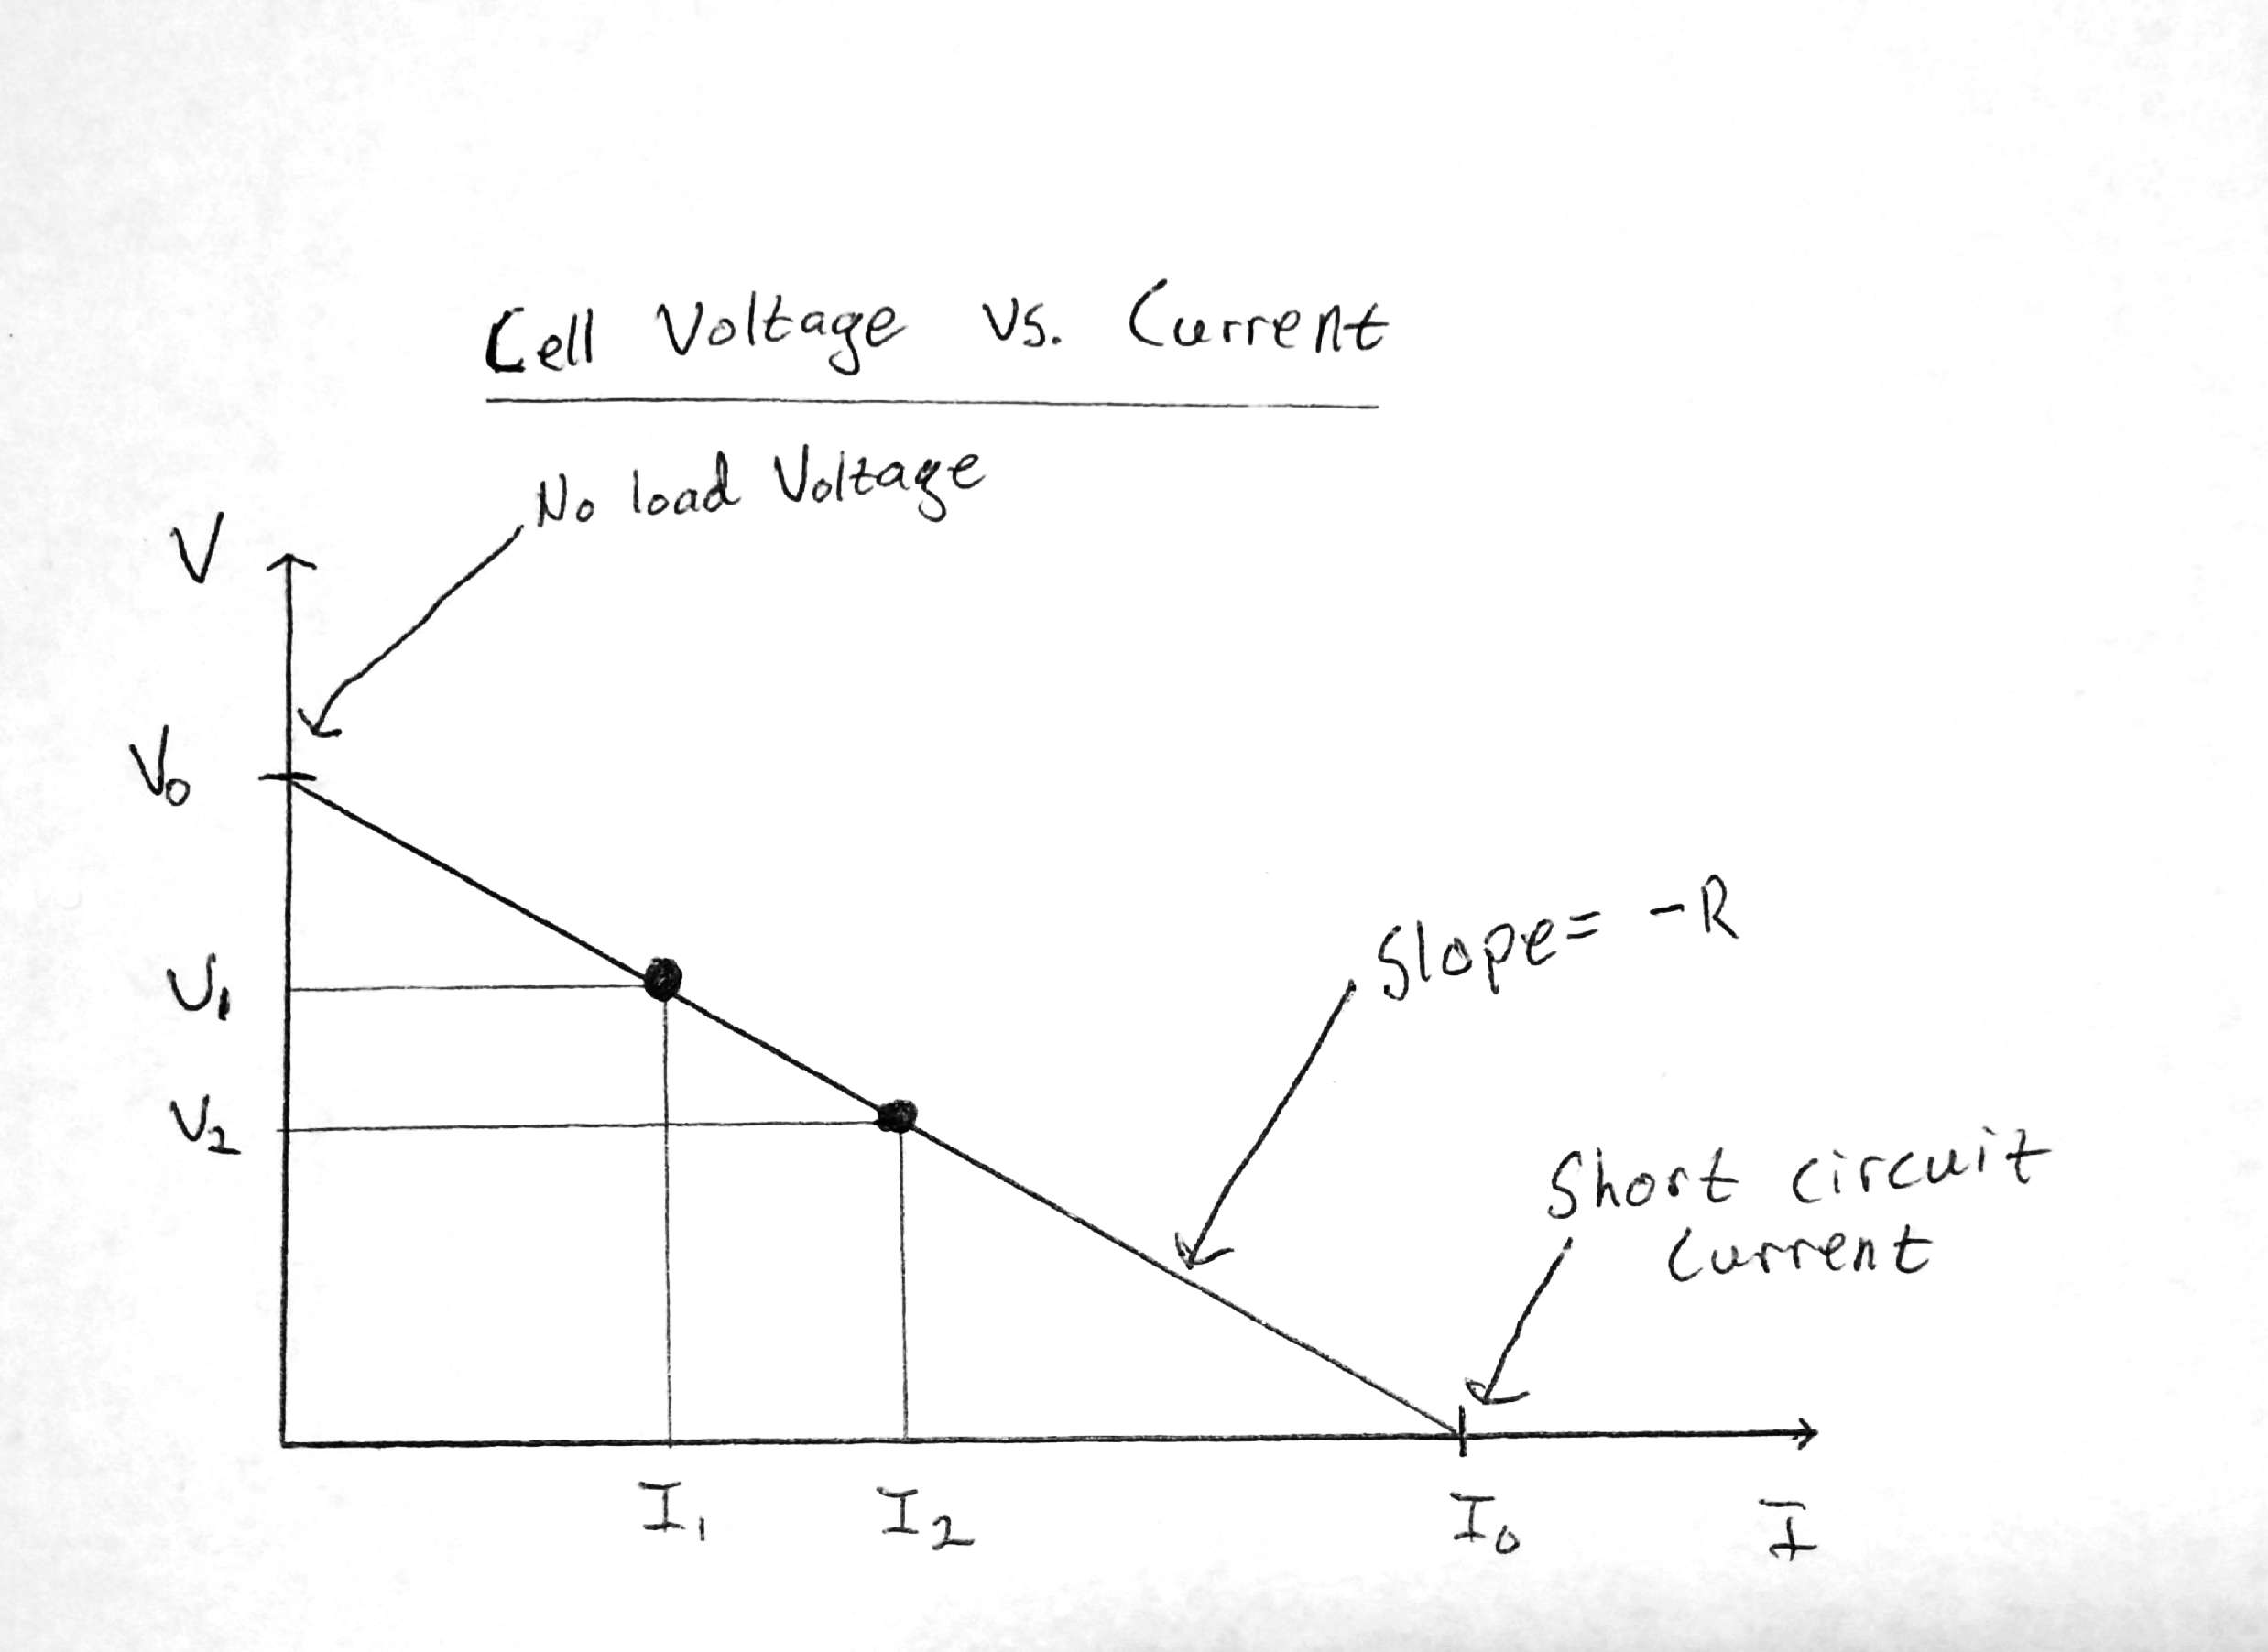 Cell Voltage vs. Current
No load Voltage
V
V0
V1
V2
Slope= -R
Short circuit
Current
I1
I2
I0
I